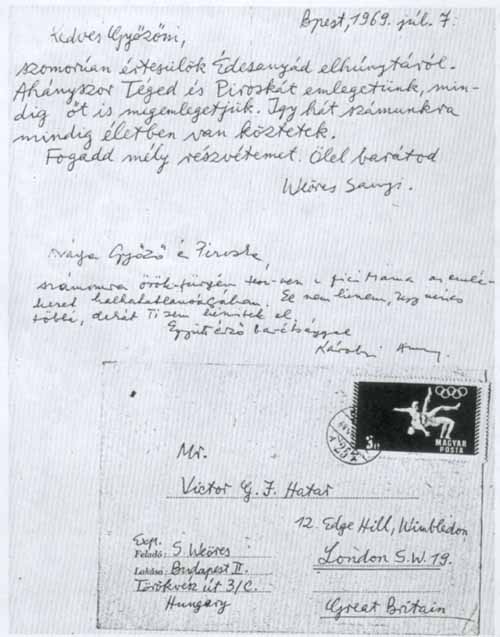 Bpest, 1969. júl. 7.
Kedves Győzőm,
szomorúan értesülök Édesanyád elhúnytáról.
Ahányszor Téged és Piroskát emlegetünk, min-
dig őt is megemlegetjük. Igy hát számunkra
mindig életben van köztetek.
Fogadd mély részvétemet. Ölel barátod
Weöres Sanyi.
Drága Győző és Piroska,
számomra örök-fürgén a pici Máma az emlé-
kezet halhatatlanságában. El nem hiszem, hogy nincs
többé, dehát Ti sem hiszitek el.
Együttérző barátsággal
Károlyi Amy.
3 Ft
MAGYAR
POSTA
Mr.
Victor G. J. Hatar
12. Edge Hill, Wimbledon
London S.W. 19.
Great Britain
Exp.
Feladó: S. Weöres
Lakása: Budapest II.
Törökvész út 3/C.
Hungary